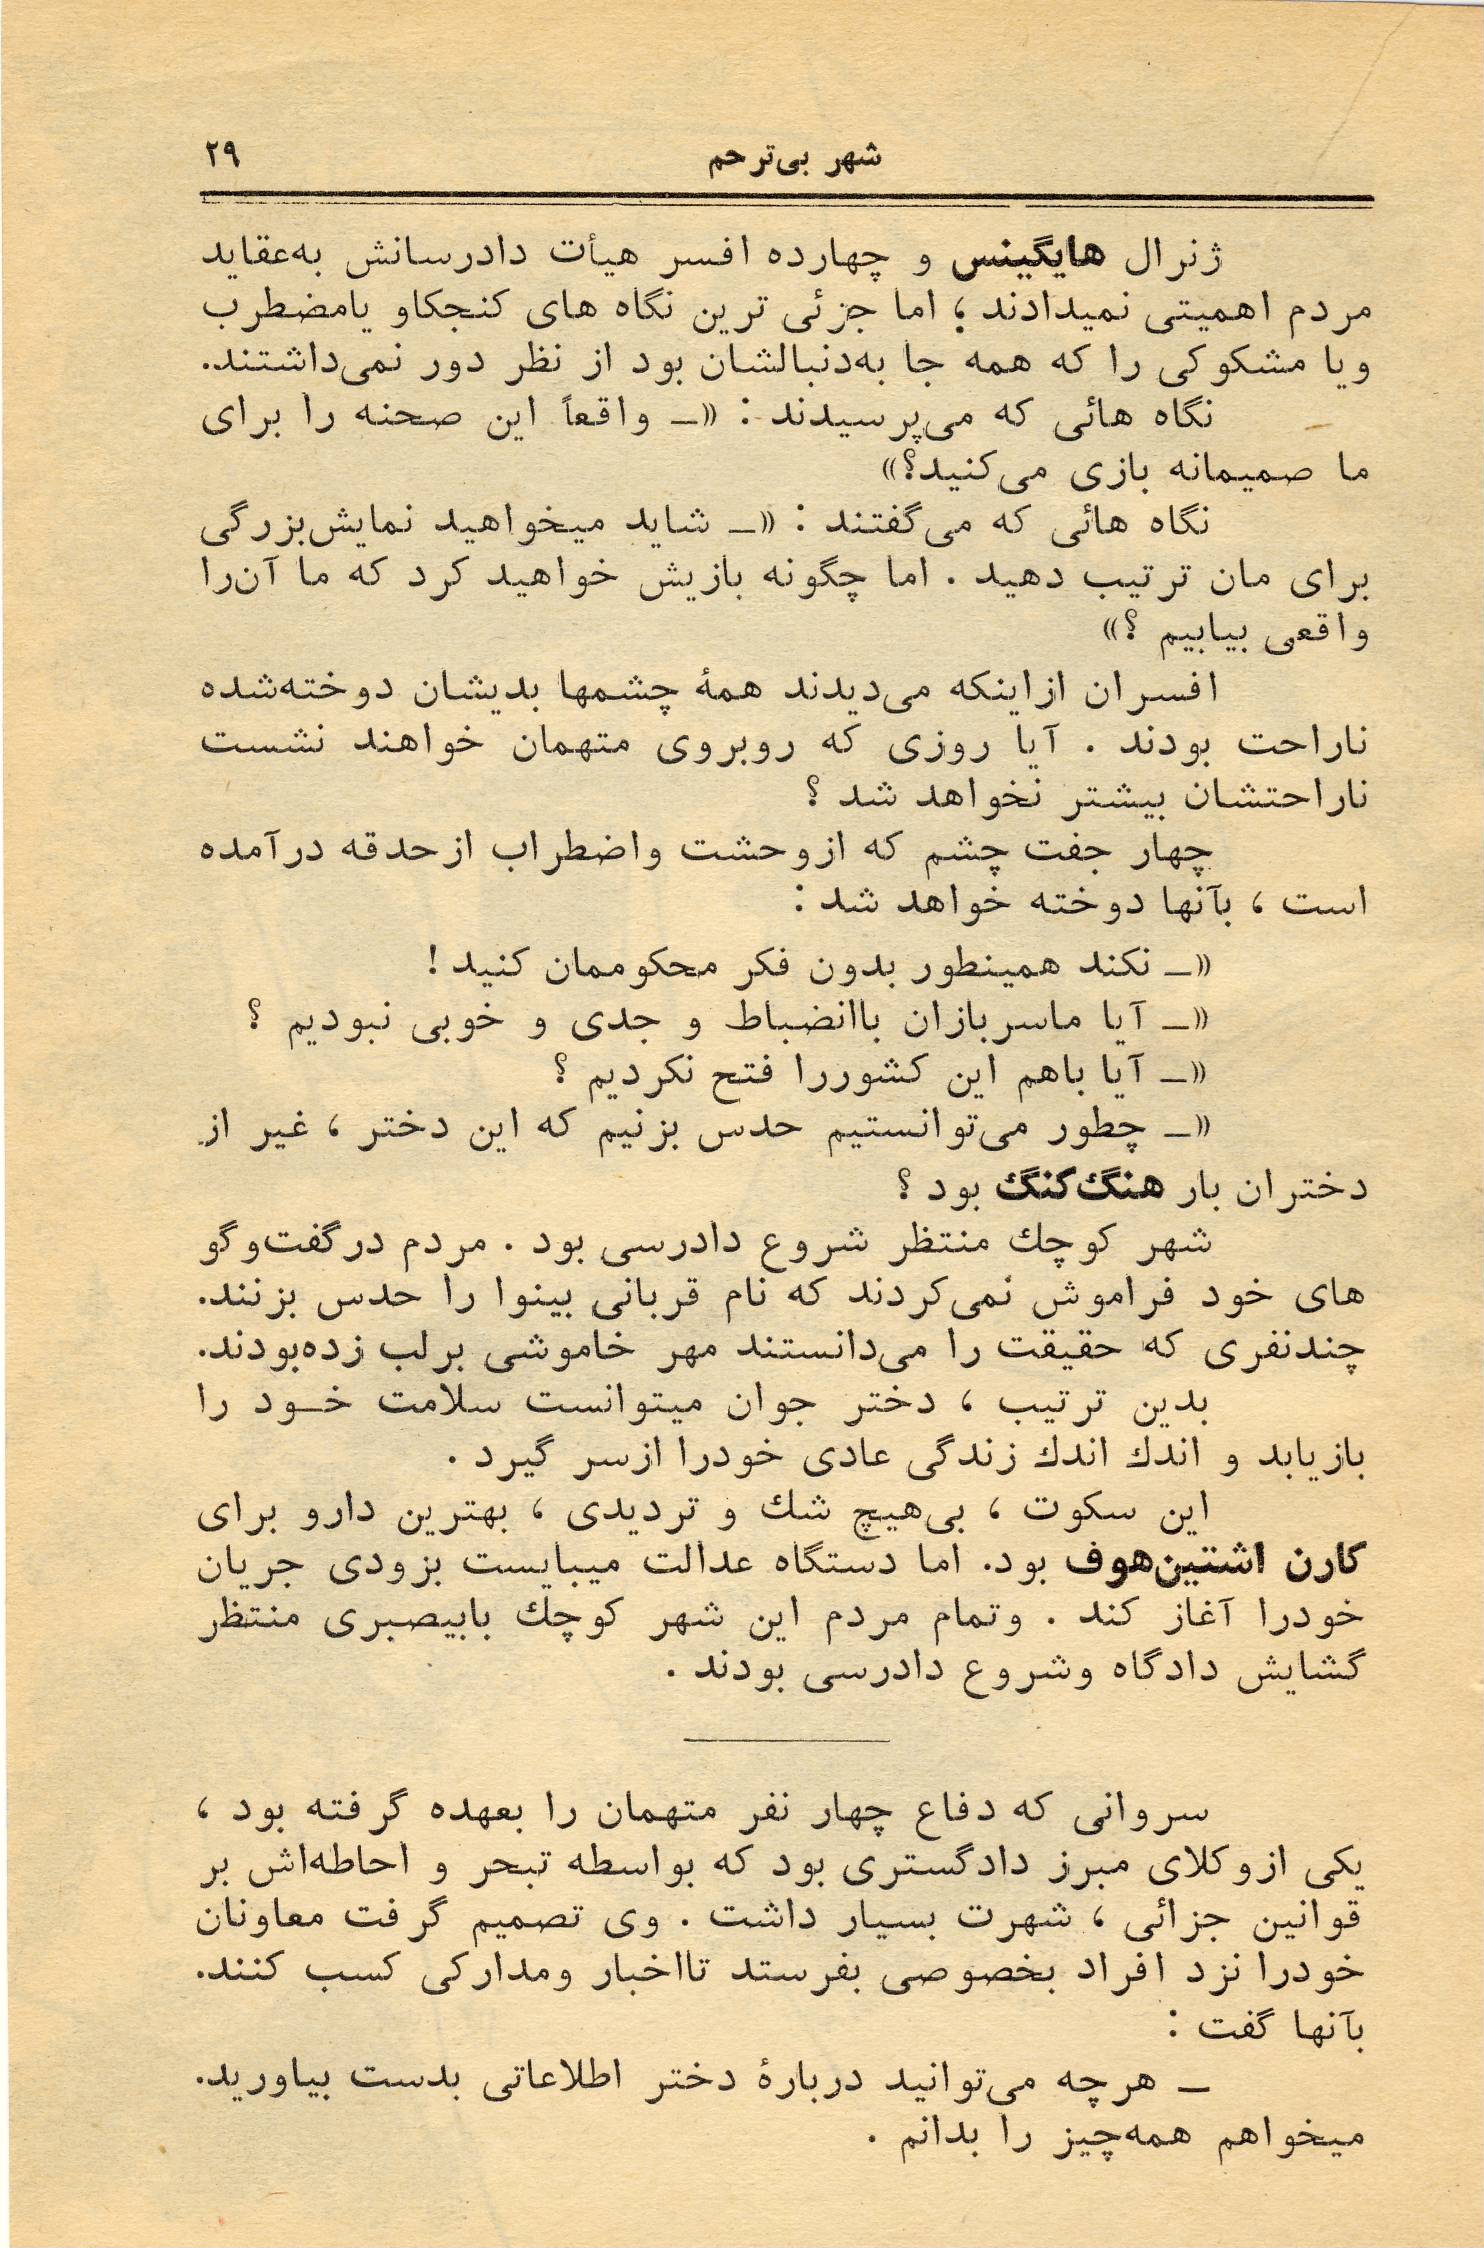 شهر بی‌ترحم ۲۹
ژنرال هایگینس و چهارده افسر هیأت دادرسانش به‌عقاید
مردم اهمیتی نمیدادند ؛ اما جزئی ترین نگاه های کنجکاو یامضطرب
ویا مشکوکی را که همه جا به‌دنبالشان بود از نظر دور نمی‌داشتند.
نگاه هائی که می‌پرسیدند : «ــ واقعاً این صحنه را برای
ما صمیمانه بازی می‌کنید؟»
نگاه هائی که می‌گفتند : «ــ شاید میخواهید نمایش‌بزرگی
برای مان ترتیب دهید . اما چگونه بازیش خواهید کرد که ما آن‌را
واقعی بیابیم ؟»
افسران ازاینکه می‌دیدند همهٔ چشمها بدیشان دوخته‌شده
ناراحت بودند . آیا روزی که روبروی متهمان خواهند نشست
ناراحتشان بیشتر نخواهد شد ؟
چهار جفت چشم که ازوحشت واضطراب ازحدقه درآمده
است ، بآنها دوخته خواهد شد :
«ــ نکند همینطور بدون فکر محکوممان کنید !
«ــ آیا ماسربازان باانضباط و جدی و خوبی نبودیم ؟
«ــ آیا باهم این کشوررا فتح نکردیم ؟
«ــ چطور می‌توانستیم حدس بزنیم که این دختر ، غیر از
دختران بار هنگ‌کنگ بود ؟
شهر کوچك منتظر شروع دادرسی بود . مردم درگفت‌وگو
های خود فراموش نمی‌کردند که نام قربانی بینوا را حدس بزنند.
چندنفری که حقیقت را می‌دانستند مهر خاموشی برلب زده‌بودند.
بدین ترتیب ، دختر جوان میتوانست سلامت خــود را
بازیابد و اندك اندك زندگی عادی خودرا ازسر گیرد .
این سکوت ، بی‌هیچ شك و تردیدی ، بهترین دارو برای
کارن اشتین‌هوف بود. اما دستگاه عدالت میبایست بزودی جریان
خودرا آغاز کند . وتمام مردم این شهر کوچك بابیصبری منتظر
گشایش دادگاه وشروع دادرسی بودند .
سروانی که دفاع چهار نفر متهمان را بعهده گرفته بود ،
یکی ازوکلای مبرز دادگستری بود که بواسطه تبحر و احاطه‌اش بر
قوانین جزائی ، شهرت بسیار داشت . وی تصمیم گرفت معاونان
خودرا نزد افراد بخصوصی بفرستد تااخبار ومدارکی کسب کنند.
بآنها گفت :
ــ هرچه می‌توانید دربارهٔ دختر اطلاعاتی بدست بیاورید.
میخواهم همه‌چیز را بدانم .